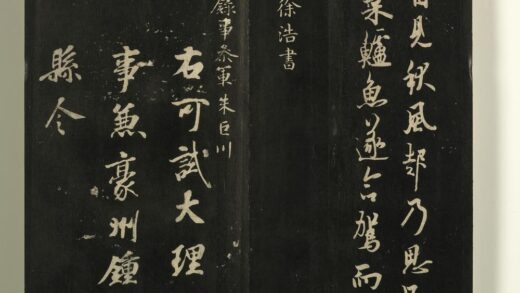 見秋風起乃思
菜鱸魚遂命駕而
徐浩書
錄事參軍朱巨川
右可試大理
事兼豪州鍾
縣令